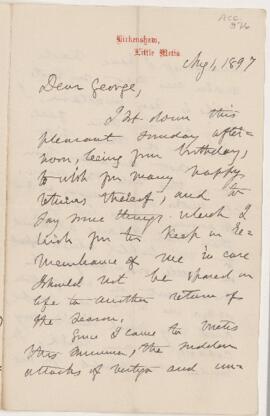 ACC
976
Birkenshaw,
Little Metis
Aug 1, 1897
Dear George,
I sit down this
pleasant Sunday after-
noon, being your birthday,
to wish you many happy
returns thereof, and to
say some things which I
wish you to keep in re-
membrance of me in case
I should not be spared in
life to another return of
the season.
Since I came to Metis
this summer, the sudden
attacks of vertigo and un-